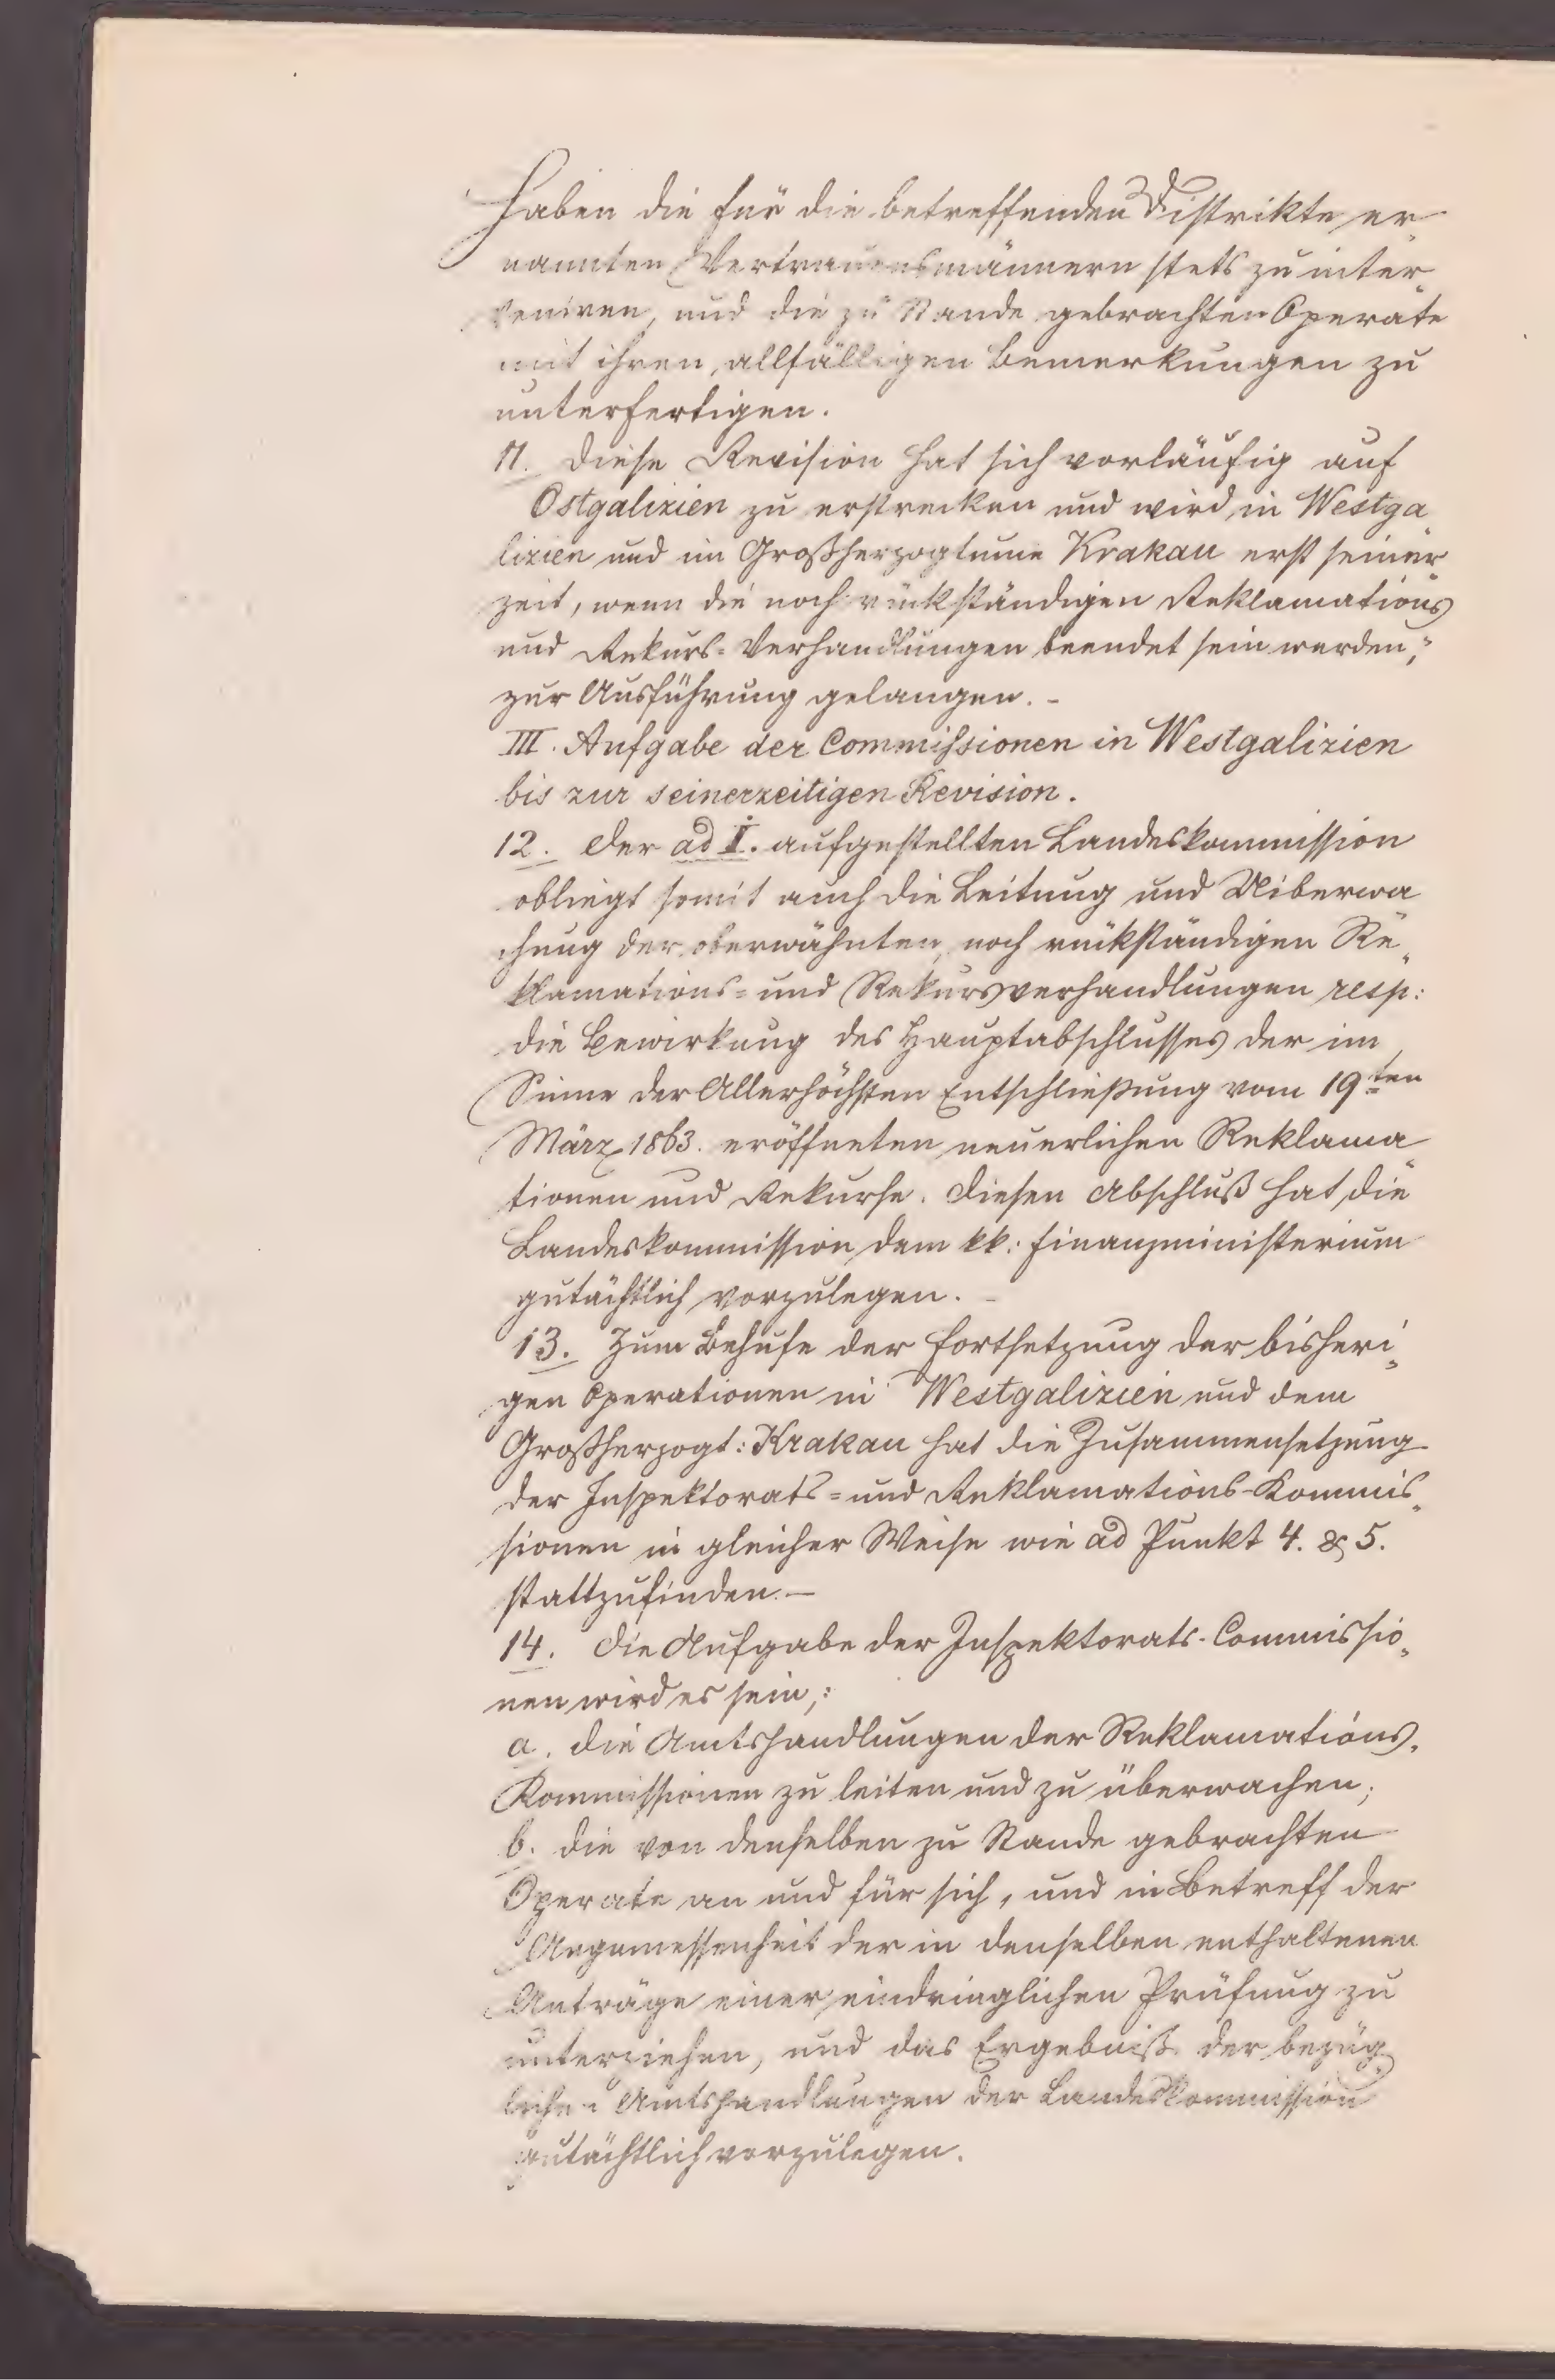 haben die für die betreffenden Distrikte er-
nannten Vertrauensmännern stets zu inter„
veniren, und die zu Stande gebrachten Operate
mit ihren, allfälligen Bemerkungen zu
unterfertigen.
11. Diese Revision hat sich vorläufig auf
Ostgalizien zu erstrecken und wird in Westga„
lizien und im Großherzogtume Krakau erst seiner„
zeit, wenn die noch rückständigen Reklamations
und Rekurs-Verhandlungen beendet sein werden,
zur Ausführung gelangen. -
III. Aufgabe der Commissionen in Westgalizien
bis zur seinerzeitigen Revision.
12. Der ad I. aufgestellten Landeskommission
obliegt somit auch die Leitung und Uiberwa
chung der oberwähnten, noch rückständigen Re„
klamations= und Rekursverhandlungen resp:
die Bewirkung des Hauptabschlusses der im
Sinne der Allerhöchsten Entschließung vom 19ten
März 1863. eröffneten neuerlichen Reklama„
tionen und Rekurse. Diesen Abschluß hat die
Landeskommission dem kk: Finanzministerium
gutächtlich vorzulegen. -
13. Zum Behufe der Fortsetzung der bisheri„
gen Operationen in Westgalizien und dem
Großherzogt: Krakau hat die Zusammensetzung
der Inspektorats= und Reklamations-Kommis„
sionen in gleicher Weise wie ad Punkt 4. & 5.
stattzufinden. —
14. Die Aufgabe der Inspektorats-Commissio„
nen wird es sein,:
a. die Amtshandlungen der Reklamations-
Kommissionen zu leiten und zu überwachen;
b. die von denselben zu Stande gebrachten
Operate an und für sich, und in Betreff der
Angemessenheit der in denselben enthaltenen
Anträge einer eindringlichen Prüfung zu
unterziehen, und das Ergebniß der bezüg„
lichen Amtshandlungen der Landeskommission
gutächtlich vorzulegen.